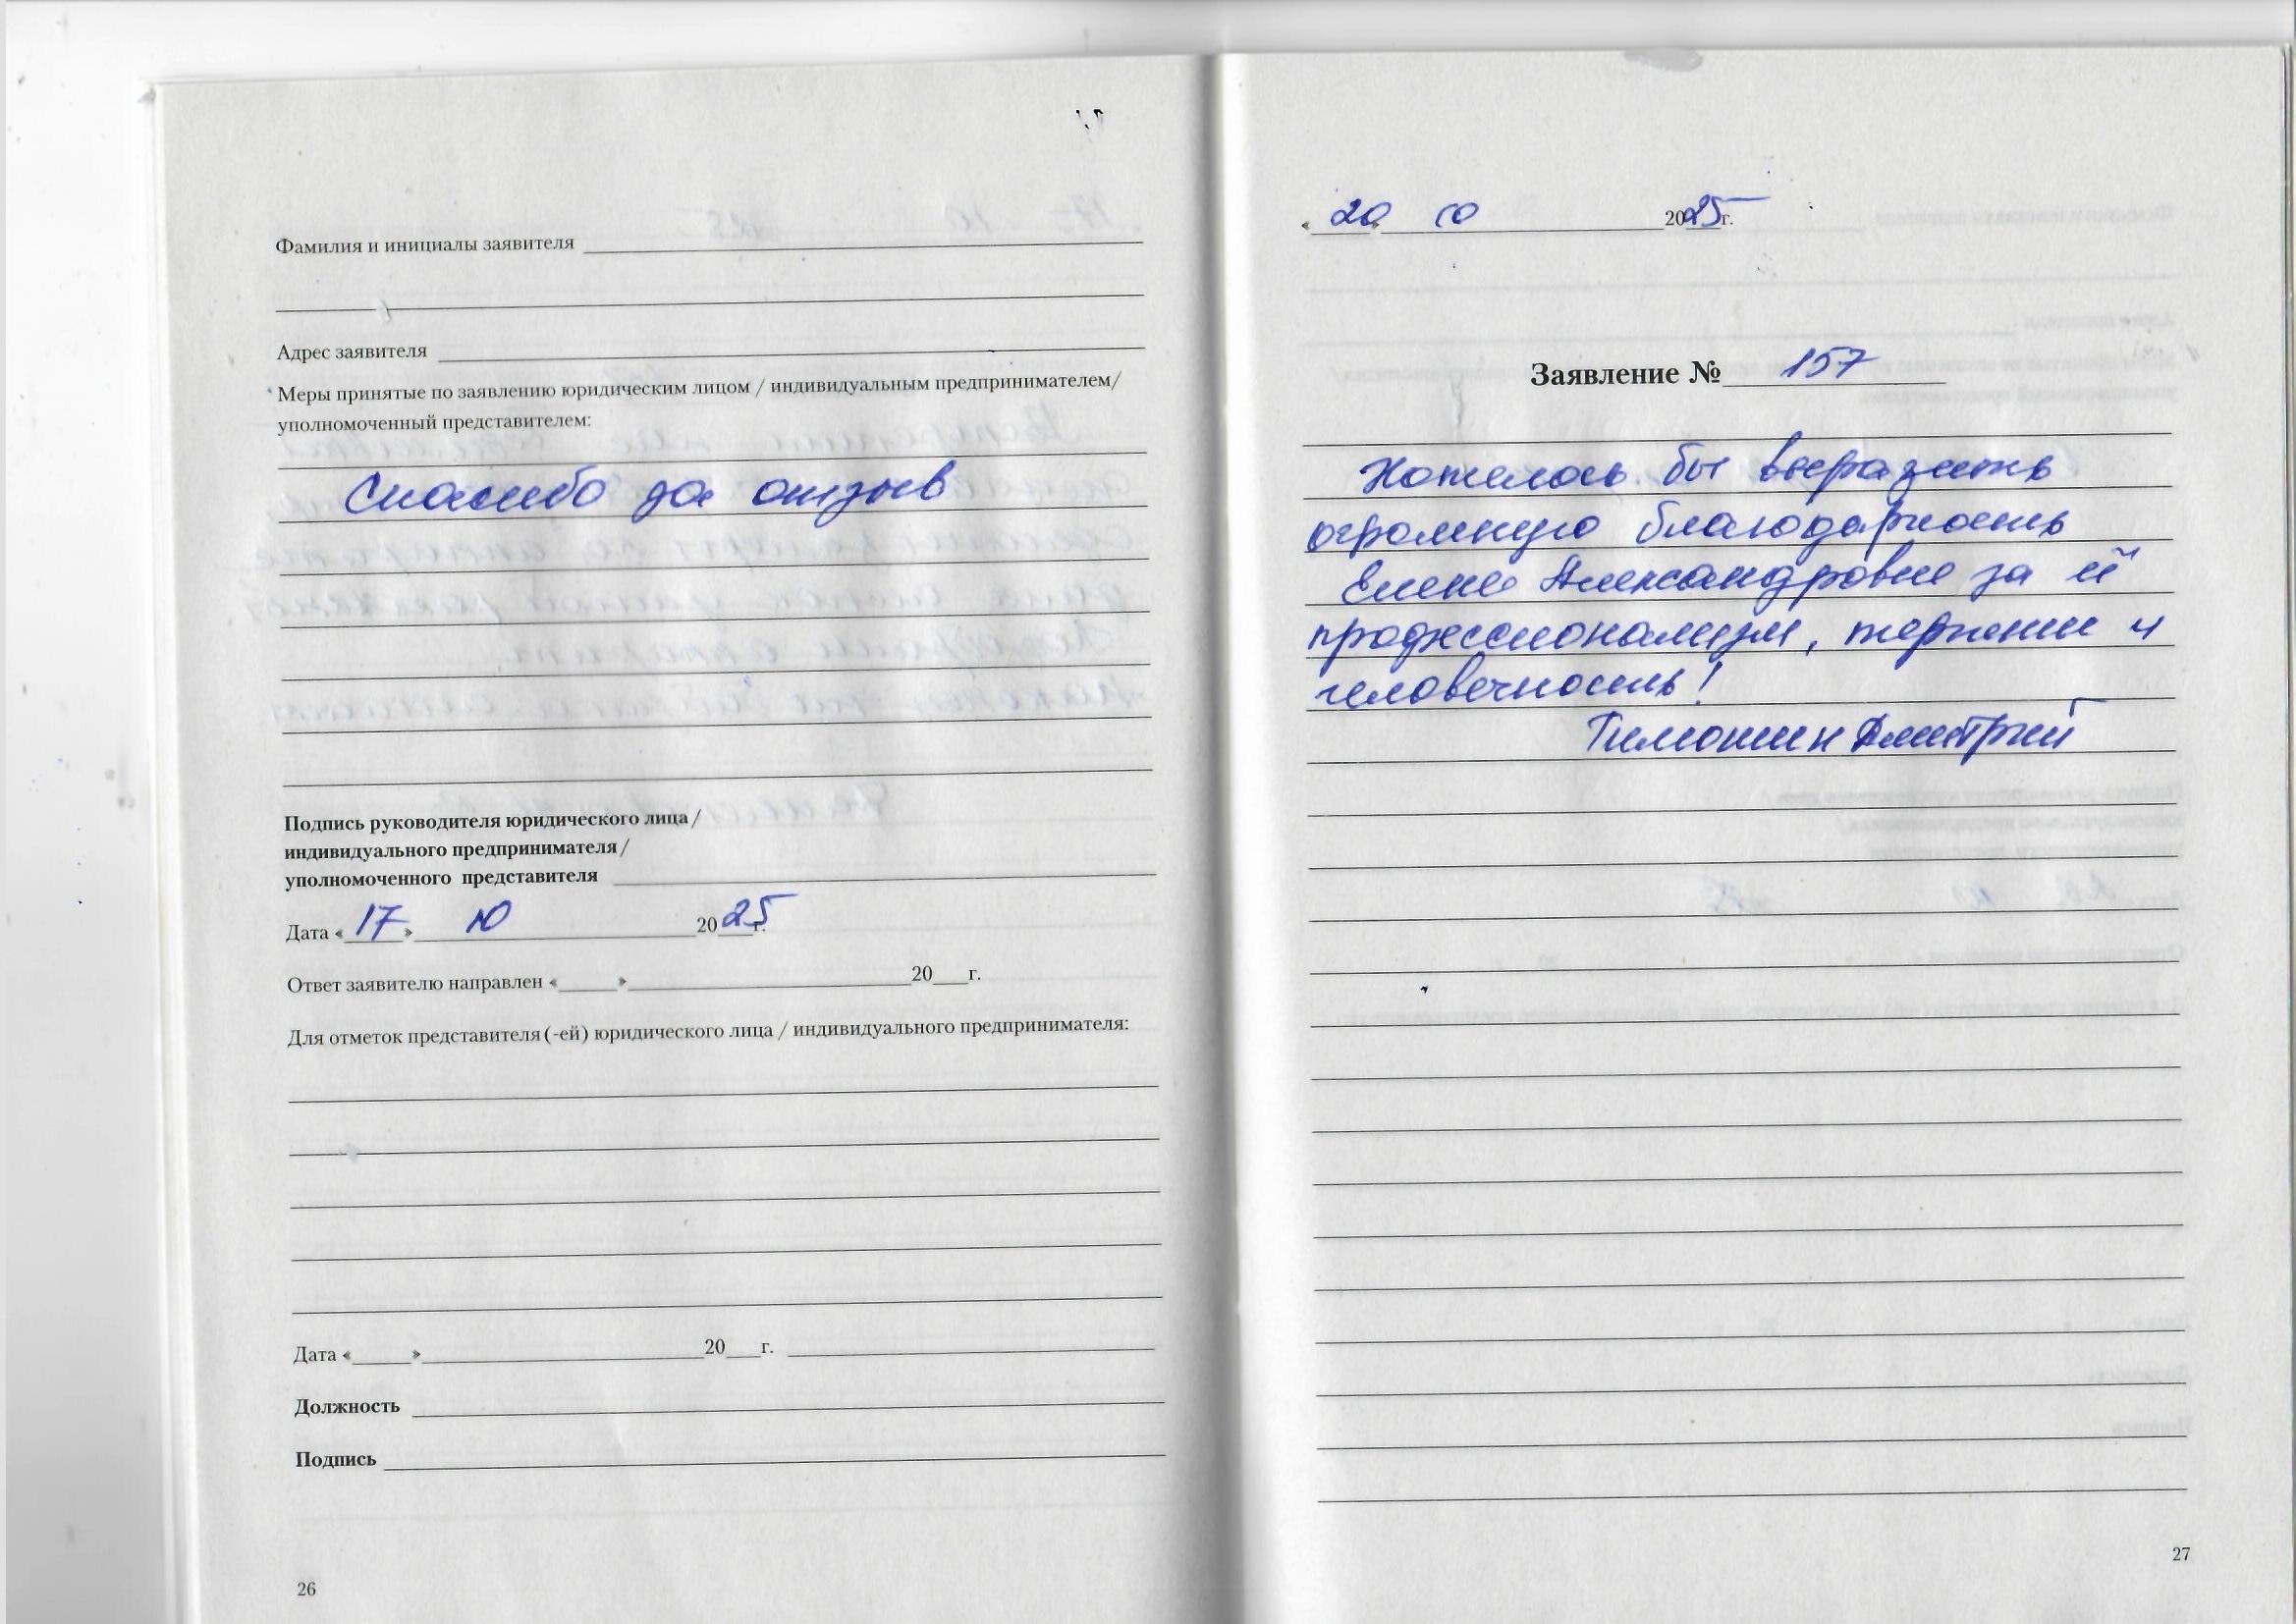 Фамилия и инициалы заявителя
Адрес заявителя
Меры принятые по заявлению юридическим лицом / индивидуальным предпринимателем/
уполномоченный представителем:
Спасибо за отзыв
Подпись руководителя юридического лица /
индивидуального предпринимателя /
уполномоченного представителя
Дата «17» 10 2025 г.
Ответ заявителю направлен « » 20 г.
Для отметок представителя (-ей) юридического лица / индивидуального предпринимателя:
Дата « » 20 г.
Должность
Подпись
26
«20» 10 2025 г.
Заявление № 157
Хотелось бы выразить
огромную благодарность
Елене Александровне за её
профессионализм, терпение и
человечность!
Тимошин Дмитрий
27